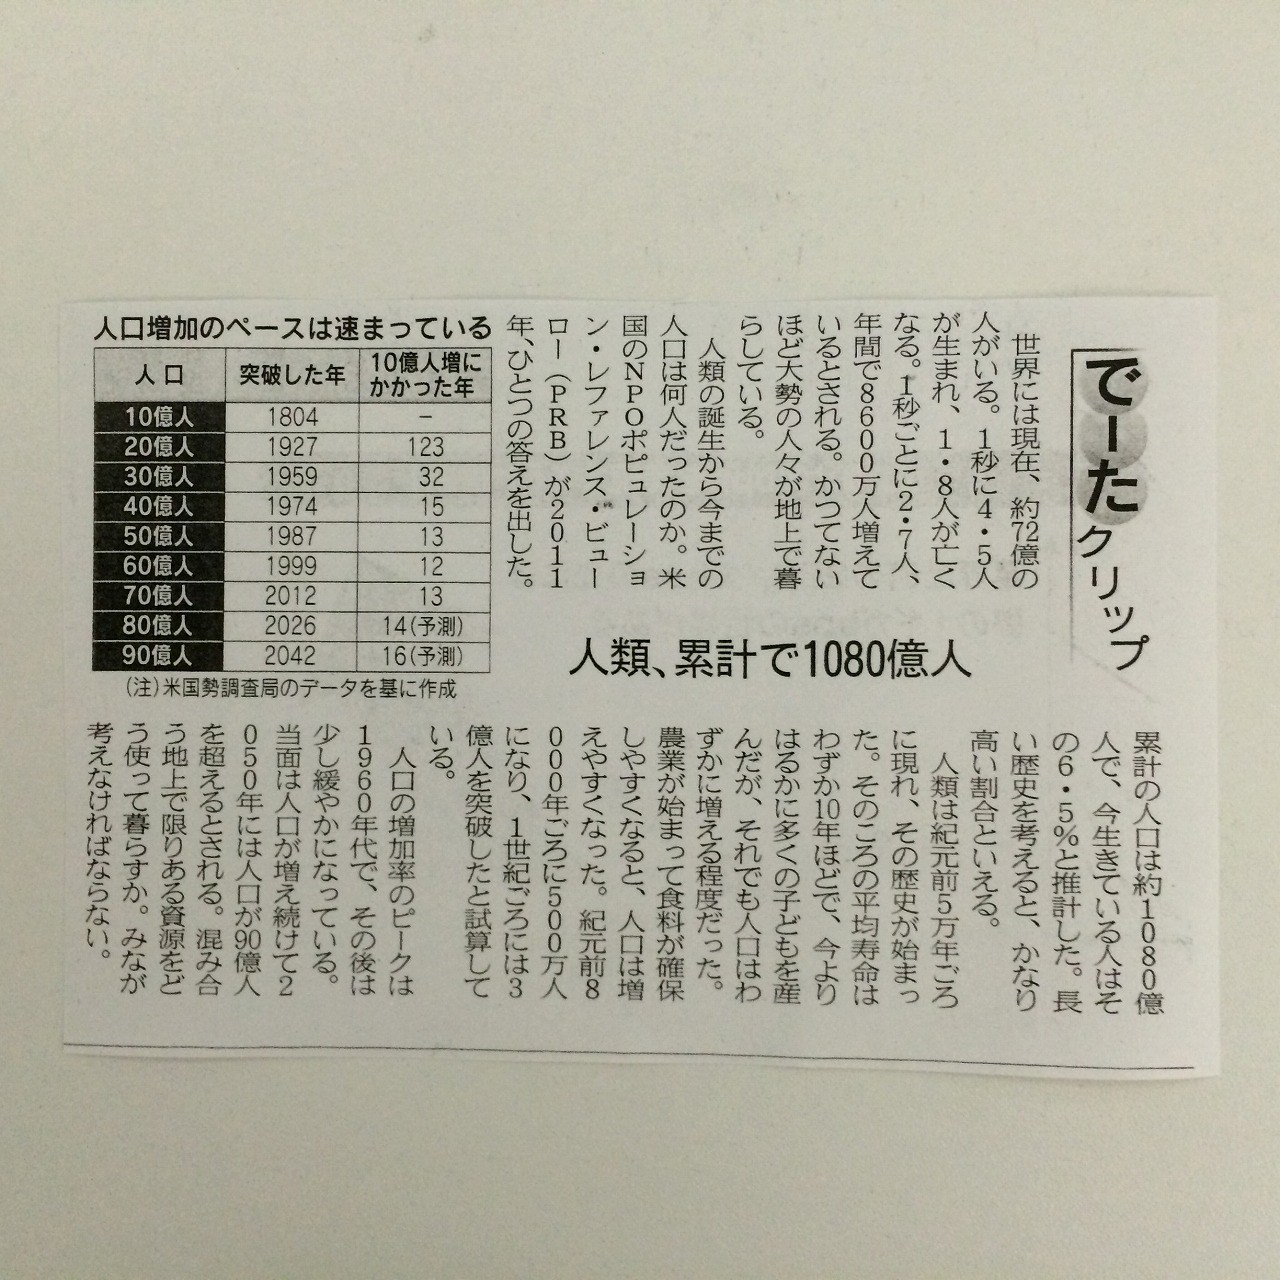 でーた
クリップ
人類、累計で1080億人
世界には現在、約72億の
人がいる。1秒に4・5人
が生まれ、1・8人が亡く
なる。1秒ごとに2・7人、
年間で8600万人増えて
いるとされる。かつてない
ほど大勢の人々が地上で暮
らしている。
人類の誕生から今までの
人口は何人だったのか。米
国のNPOポピュレーショ
ン・レファレンス・ビュー
ロー(PRB)が2011
年、ひとつの答えを出した。
累計の人口は約1080億
人で、今生きている人はそ
の6・5%と推計した。長
い歴史を考えると、かなり
高い割合といえる。
人類は紀元前5万年ごろ
に現れ、その歴史が始まっ
た。そのころの平均寿命は
わずか10年ほどで、今より
はるかに多くの子どもを産
んだが、それでも人口はわ
ずかに増える程度だった。
農業が始まって食料が確保
しやすくなると、人口は増
えやすくなった。紀元前8
000年ごろに500万人
になり、1世紀ごろには3
億人を突破したと試算して
いる。
人口の増加率のピークは
1960年代で、その後は
少し緩やかになっている。
当面は人口が増え続けて2
050年には人口が90億人
を超えるとされる。混み合
う地上で限りある資源をど
う使って暮らすか。みなが
考えなければならない。
人口増加のペースは速まっている
人口 突破した年 10億人増にかかった年
10億人 1804 −
20億人 1927 123
30億人 1959 32
40億人 1974 15
50億人 1987 13
60億人 1999 12
70億人 2012 13
80億人 2026 14(予測)
90億人 2042 16(予測)
(注)米国勢調査局のデータを基に作成